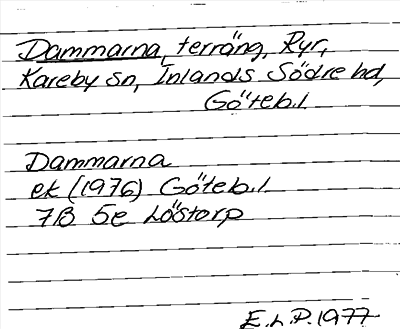 Dammarna, terräng, Ryr,
Kareby sn, Inlands Södre hd,
Göteb.l.
Dammarna
ek (1976) Göteb.l.
7B 5e Löstorp
E.L.P. 1977